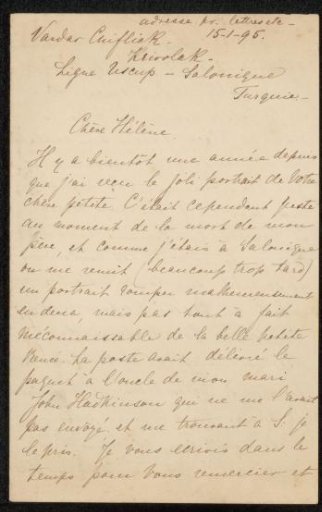 adresse pr. lettres etc -
Vardar Chiflick. 15-1-95.
Krivolak.
Ligne Uscup - Salonique
Turquie -
Chère Hélène.
Il y a bientôt une année depuis
que j'ai reçu le joli portrait de votre
chère petite. C'était cependant juste
au moment de la mort de mon
père, et comme j'étais à Salonique
on me remit (beaucoup trop tard)
un portrait rompu malheureusement
en deux, mais pas tout à fait
méconnaissable de la belle petite
Renée. La poste avait délivré le
paquet à l'oncle de mon mari
John Hadkinson qui ne me l'avait
pas envoyé et me trouvant à S. je
le pris. Je vous écrivis dans le
temps pour vous remercier et